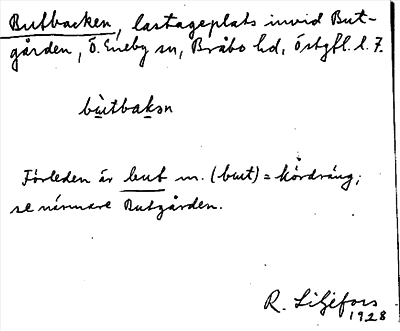 Butbacken, lastageplats invid But-
gården, Ö. Eneby sn, Bråbo hd, Östgtl. l. 7.
bùtbakən
Förleden är but m. (but) = kördräng;
se närmare Butgården.
R. Liljefors
1928